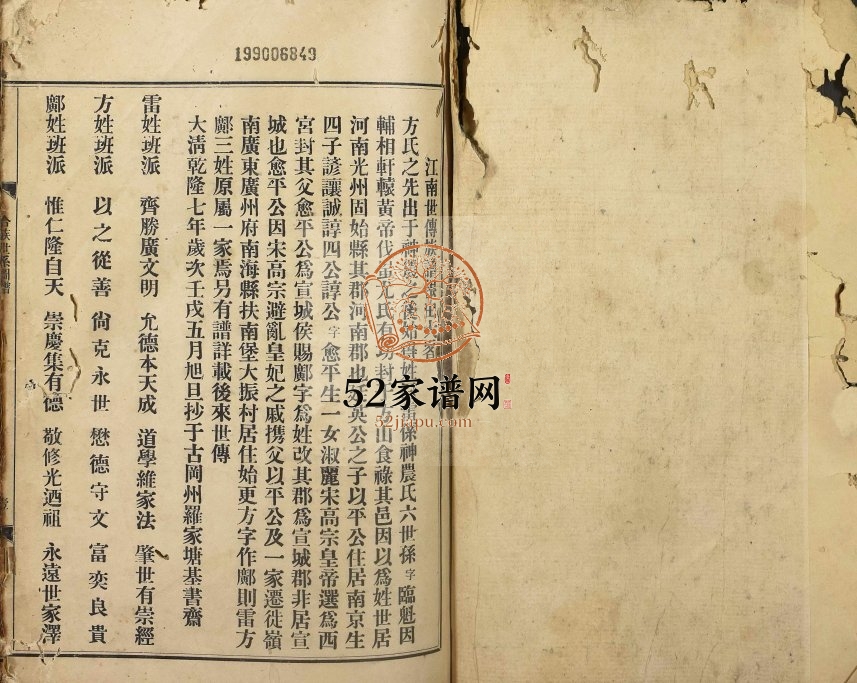 199006843
江南世傳
方氏之先出于神農之後始得姓雷係神農氏六世孫字臨魁因
輔相軒轅黃帝伐蚩尤氏有功封于方山食祿其邑因以爲姓世居
河南光州固始縣其郡河南郡也英公之子以平公住居南京生
四子諺讓誠諄四公諄公字愈平生一女淑麗宋高宗皇帝選爲西
宮封其父愈平公爲宣城侯賜鄺字爲姓改其郡爲宣城郡非居宣
城也愈平公因宋高宗避亂皇妃之戚携父以平公及一家遷徙嶺
南廣東廣州府南海縣扶南堡大振村居住始更方字作鄺則雷方
鄺三姓原屬一家焉另有譜詳載後來世傳
大清乾隆七年歲次壬戌五月旭旦抄于古岡州羅家塘基書齋
雷姓班派 齊勝廣文明 允德本天成 道學維家法 肇世有崇經
方姓班派 以之從善 尙克永世 懋德守文 富奕良貴
鄺姓班派 惟仁隆自天 崇慶集有德 敬修光迺祖 永遠世家澤
52家谱网
52jiapu.com